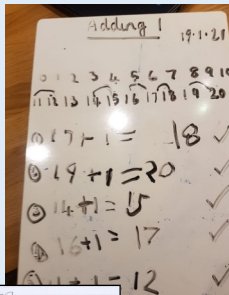 Adding 1
19.1.21
0 1 2 3 4 5 6 7 8 9 10
11 12 13 14 15 16 17 18 19 20
① 17+1= 18 ✓
② 19+1=20 ✓
③ 14+1=15 ✓
④ 16+1=17 ✓
11+1=12 ✓